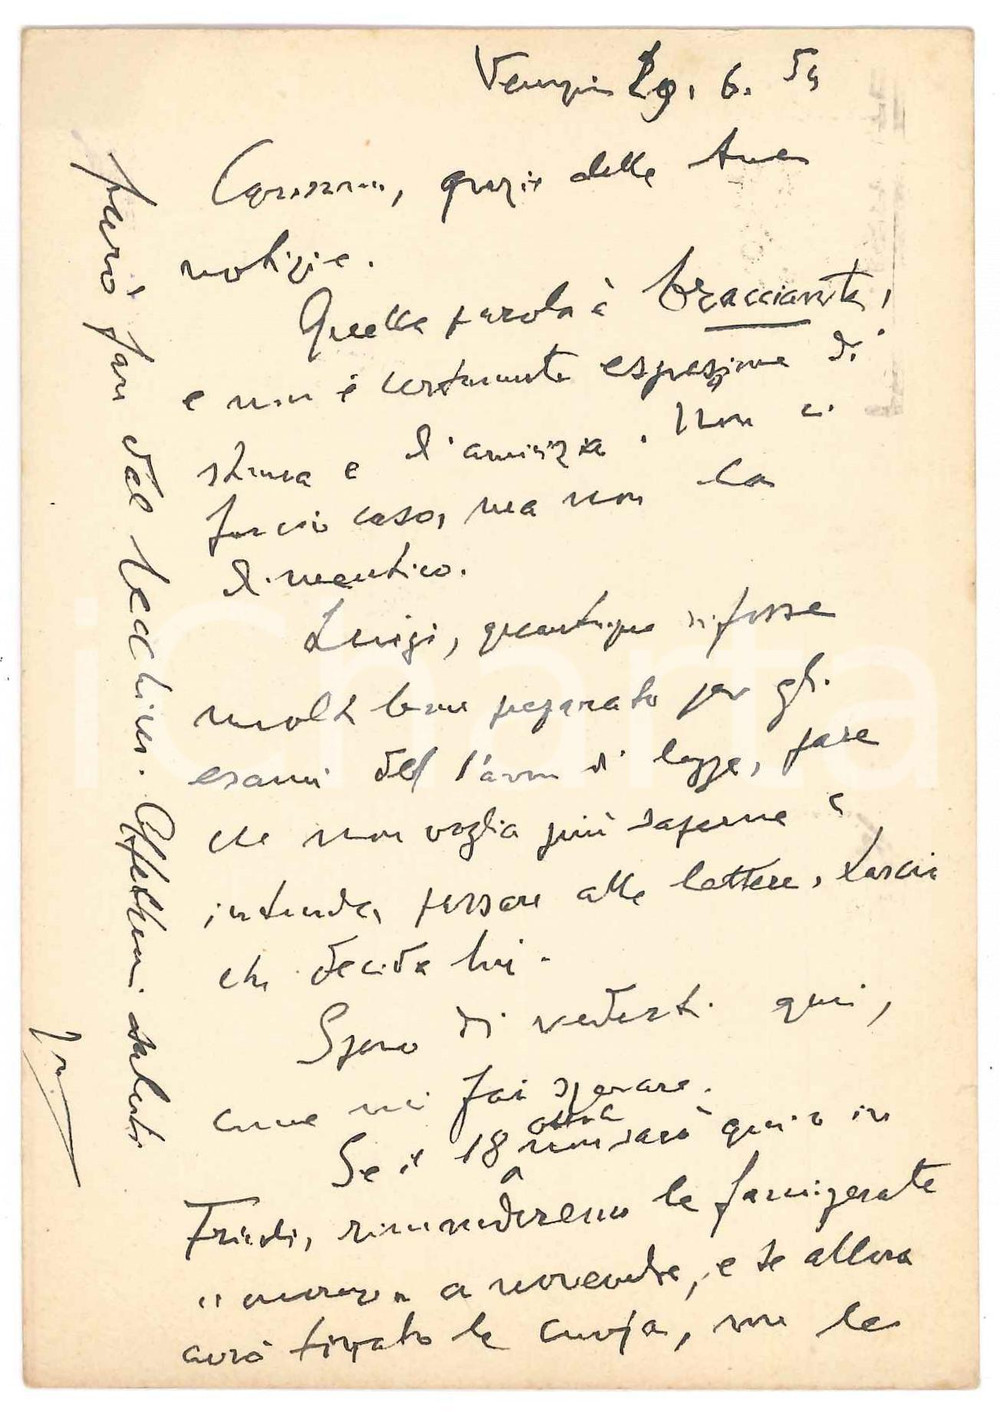 Venezia 29. 6. 54
Carissimo, grazie delle tue
notizie.
Quella parola è bracciante,
e non è certamente espressione di
stima e d'amicizia. Non ci
faccio caso, ma non la
dimentico.
Luigi, quantunque si fosse
molto bene preparato per gli
esami del 1° anno di legge, pare
che non voglia più saperne e
intenda passare alle lettere. Lascio
che decida lui.
Spero di vederti qui,
come mi fai sperare.
Se il 18 non sarò qui o in
Friuli, rimanderemo le famigerate
" " a novembre, e se allora
avrò tirato le cuoia, me le
farò fare dal Zecchini. Affettuosi saluti
iCharta